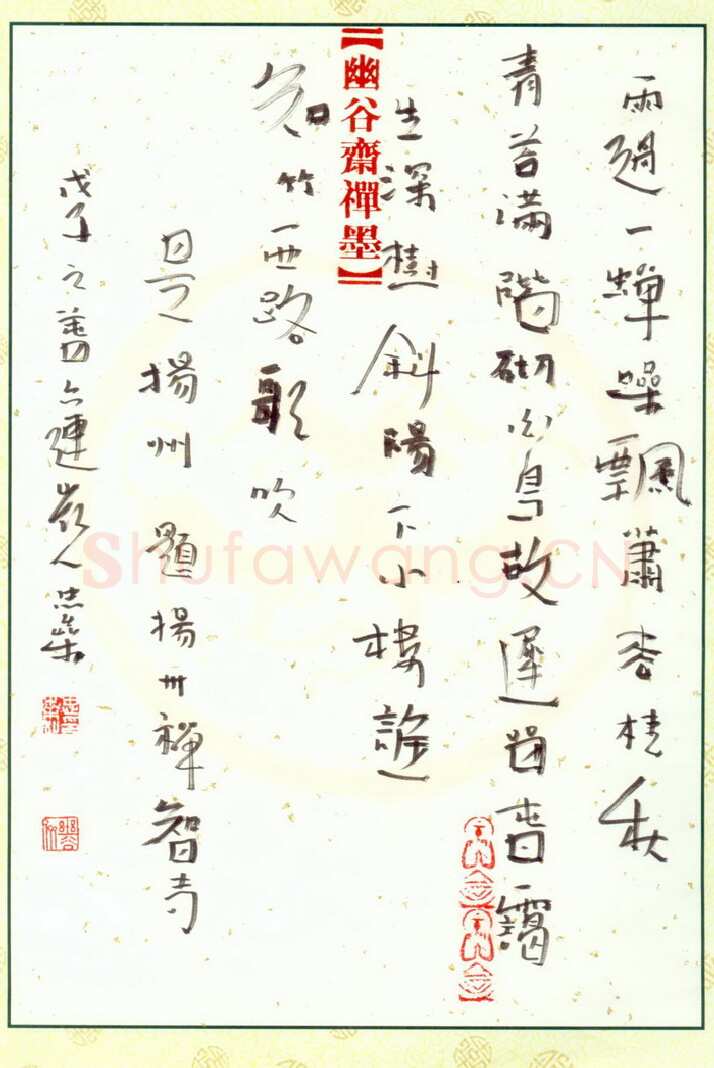 【幽谷齋禪墨】
雨過一蟬噪飄蕭松桂秋
青苔滿階砌白鳥故遲留暮靄
生深樹斜陽下小樓誰
知竹西路歌吹
是揚州 題揚州禪智寺
戊子之六連嶺人忠
Shufawang.CN